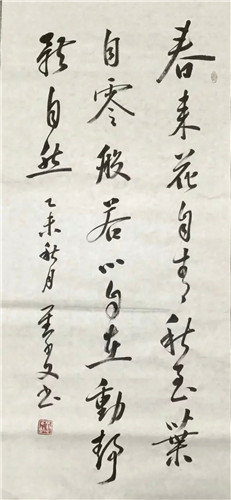 春来花自青秋至葉
自零般若心自在動静
體自然 乙未秋月 文书